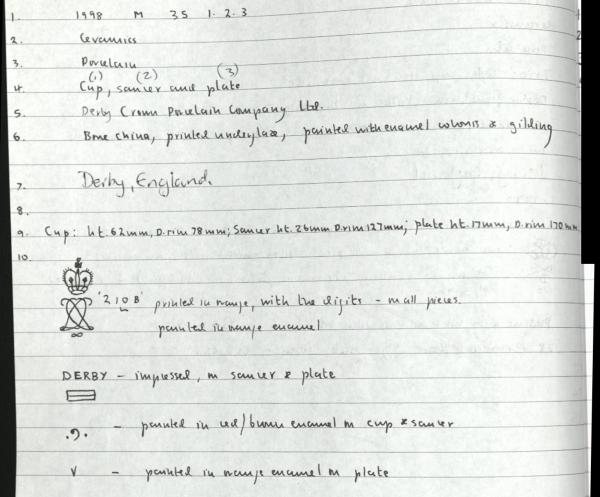 1. 1998 M 35 1. 2. 3
2. Ceramics
3. Porcelain
(1) (2) (3)
4. Cup, saucer and plate
5. Derby Crown Porcelain Company Ltd.
6. Bone china, printed underglaze, painted with enamel colours & gilding
7. Derby, England.
8.
9. Cup: ht. 62mm, D.rim 78mm; Saucer ht. 26mm D.rim 127mm; plate ht. 17mm, D.rim 170mm
10.
'2 10 B' printed in orange, with the digits - on all pieces.
painted in orange enamel
DERBY - impressed, on saucer & plate
.9. - painted in red/brown enamel on cup & saucer
V - painted in orange enamel on plate